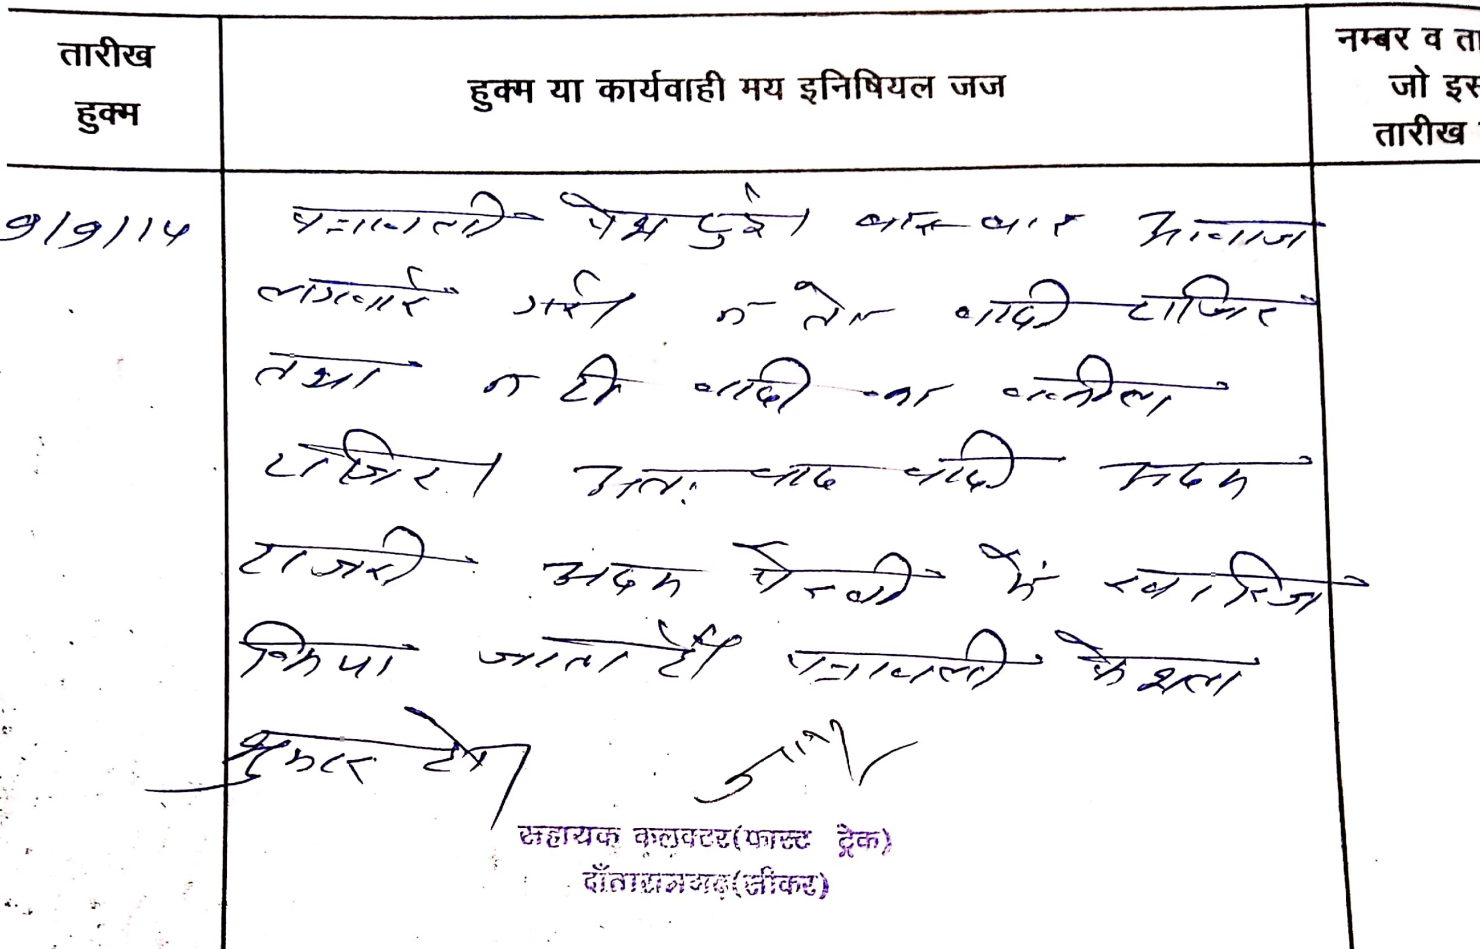 तारीख
हुक्म
हुक्म या कार्यवाही मय इनिषियल जज
नम्बर व ता
जो इस
तारीख
9/9/14
पत्रावली पेश हुई। बार-बार आवाज
लगवाई गई। न तो वादी हाजिर
तथा न ही वादी का वकील
हाजिर। अतः वाद वादी अदम
हाजरी अदम पैरवी में खारिज
किया जाता है। पत्रावली फैशल
शुमार हो।
सहायक कलक्टर(फास्ट ट्रेक)
दाँतारामगढ़(सीकर)